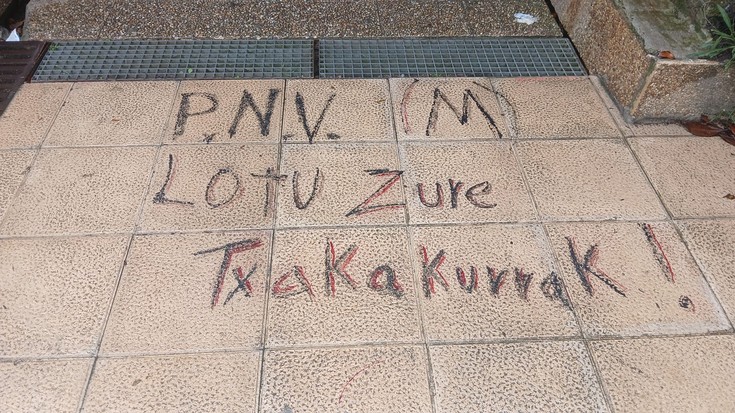 P.N.V. (M)
Lotu Zure
Txakakurrak!